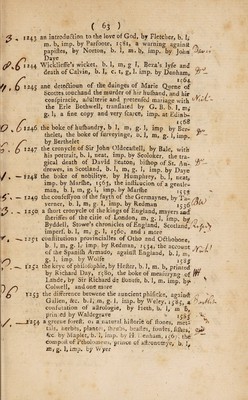 ( 63 )
1243 an introduction to the love of God, by Fletcher, b. l,
m. b, imp. by Purfoote, 1581, a warning against
papistes, by Norton, b. l, m. b, imp. by John
Daye
1244 Wickliesse's wicket, b. l, m, g l, Beza's lyfe and
death of Calvin, b. l, c. t, g. l. imp. by Denham,
1564
1245 ane detectioun of the duinges of Marie Quene of
Scottes touchand the murder of hir husband, and hir
conspiracie, adulterie and pretensed mariage with
the Erle Bothwell, translated by G. B. b. l, m,
g. l, a fine copy and very scarce, imp. at Edinb-
1568
1246 the boke of husbandry, b. l, m, g. l, imp by Ber-
thelet, the boke of surveyinge, b. l, m, g. l, imp.
by Berthelet
1247 the cronycle of Sir John Oldecastell, by Bale, with
his portrait, b. l, neat, imp by Scoloker, the tra-
gical death of David Beaton, bishop of St. An-
drewes, in Scotland, b. l, m, g. l, imp by Daye
1248 the boke of nobilitye, by Humphrey, b. l, neat,
imp. by Marshe, 1563, the institucion of a gentle-
man, b. l, m, g. l, imp. by Marshe 1555
1249 the confession of the fayth of the Germaynes, by Ta-
verner, b. l, m, g l, imp. by Redman 1536
1250 a short cronycle of the kings of England, mayers and
sheriffes of the citie of London, m, g. l, imp. by
Byddell, Stowe's chronicles of England, Scotland,
imperf. b. l, m, g. l, 1560, and 2 more
1251 constitutions provincialles of Otho and Octhobone,
b l, m, g. l. imp. by Redman, 1534, the account
of the Spanish Armado, against England, b. l, m,
g. l, imp. by Wolfe 1585
1252 the keye of philosophie, by Hester, b. l, m. b, printed
by Richard Day, 1580, the boke of measuryng of
Lande, by Sir Richard de Benese, b. l, m. imp. by
Colwell, and one more
1253 the difference betwene the auncient phisicke, against
Galien, &c. b. l, m, g. l, imp. by Weley, 1585, a
confutation of astrologie, by Fieth, b. l, m b,
printed by Waldegrave 1585
1254 a greene forest, or a natural historie of stones, met-
tals, herbes, plantes, shrubs, beastes, foules, fishes,
&c. by Maplet, b. l, imp. by H Denham, 1567, the
compost of Ptholomeus, prince of astronomye, b. l,
m, g. l, imp. by Wyer